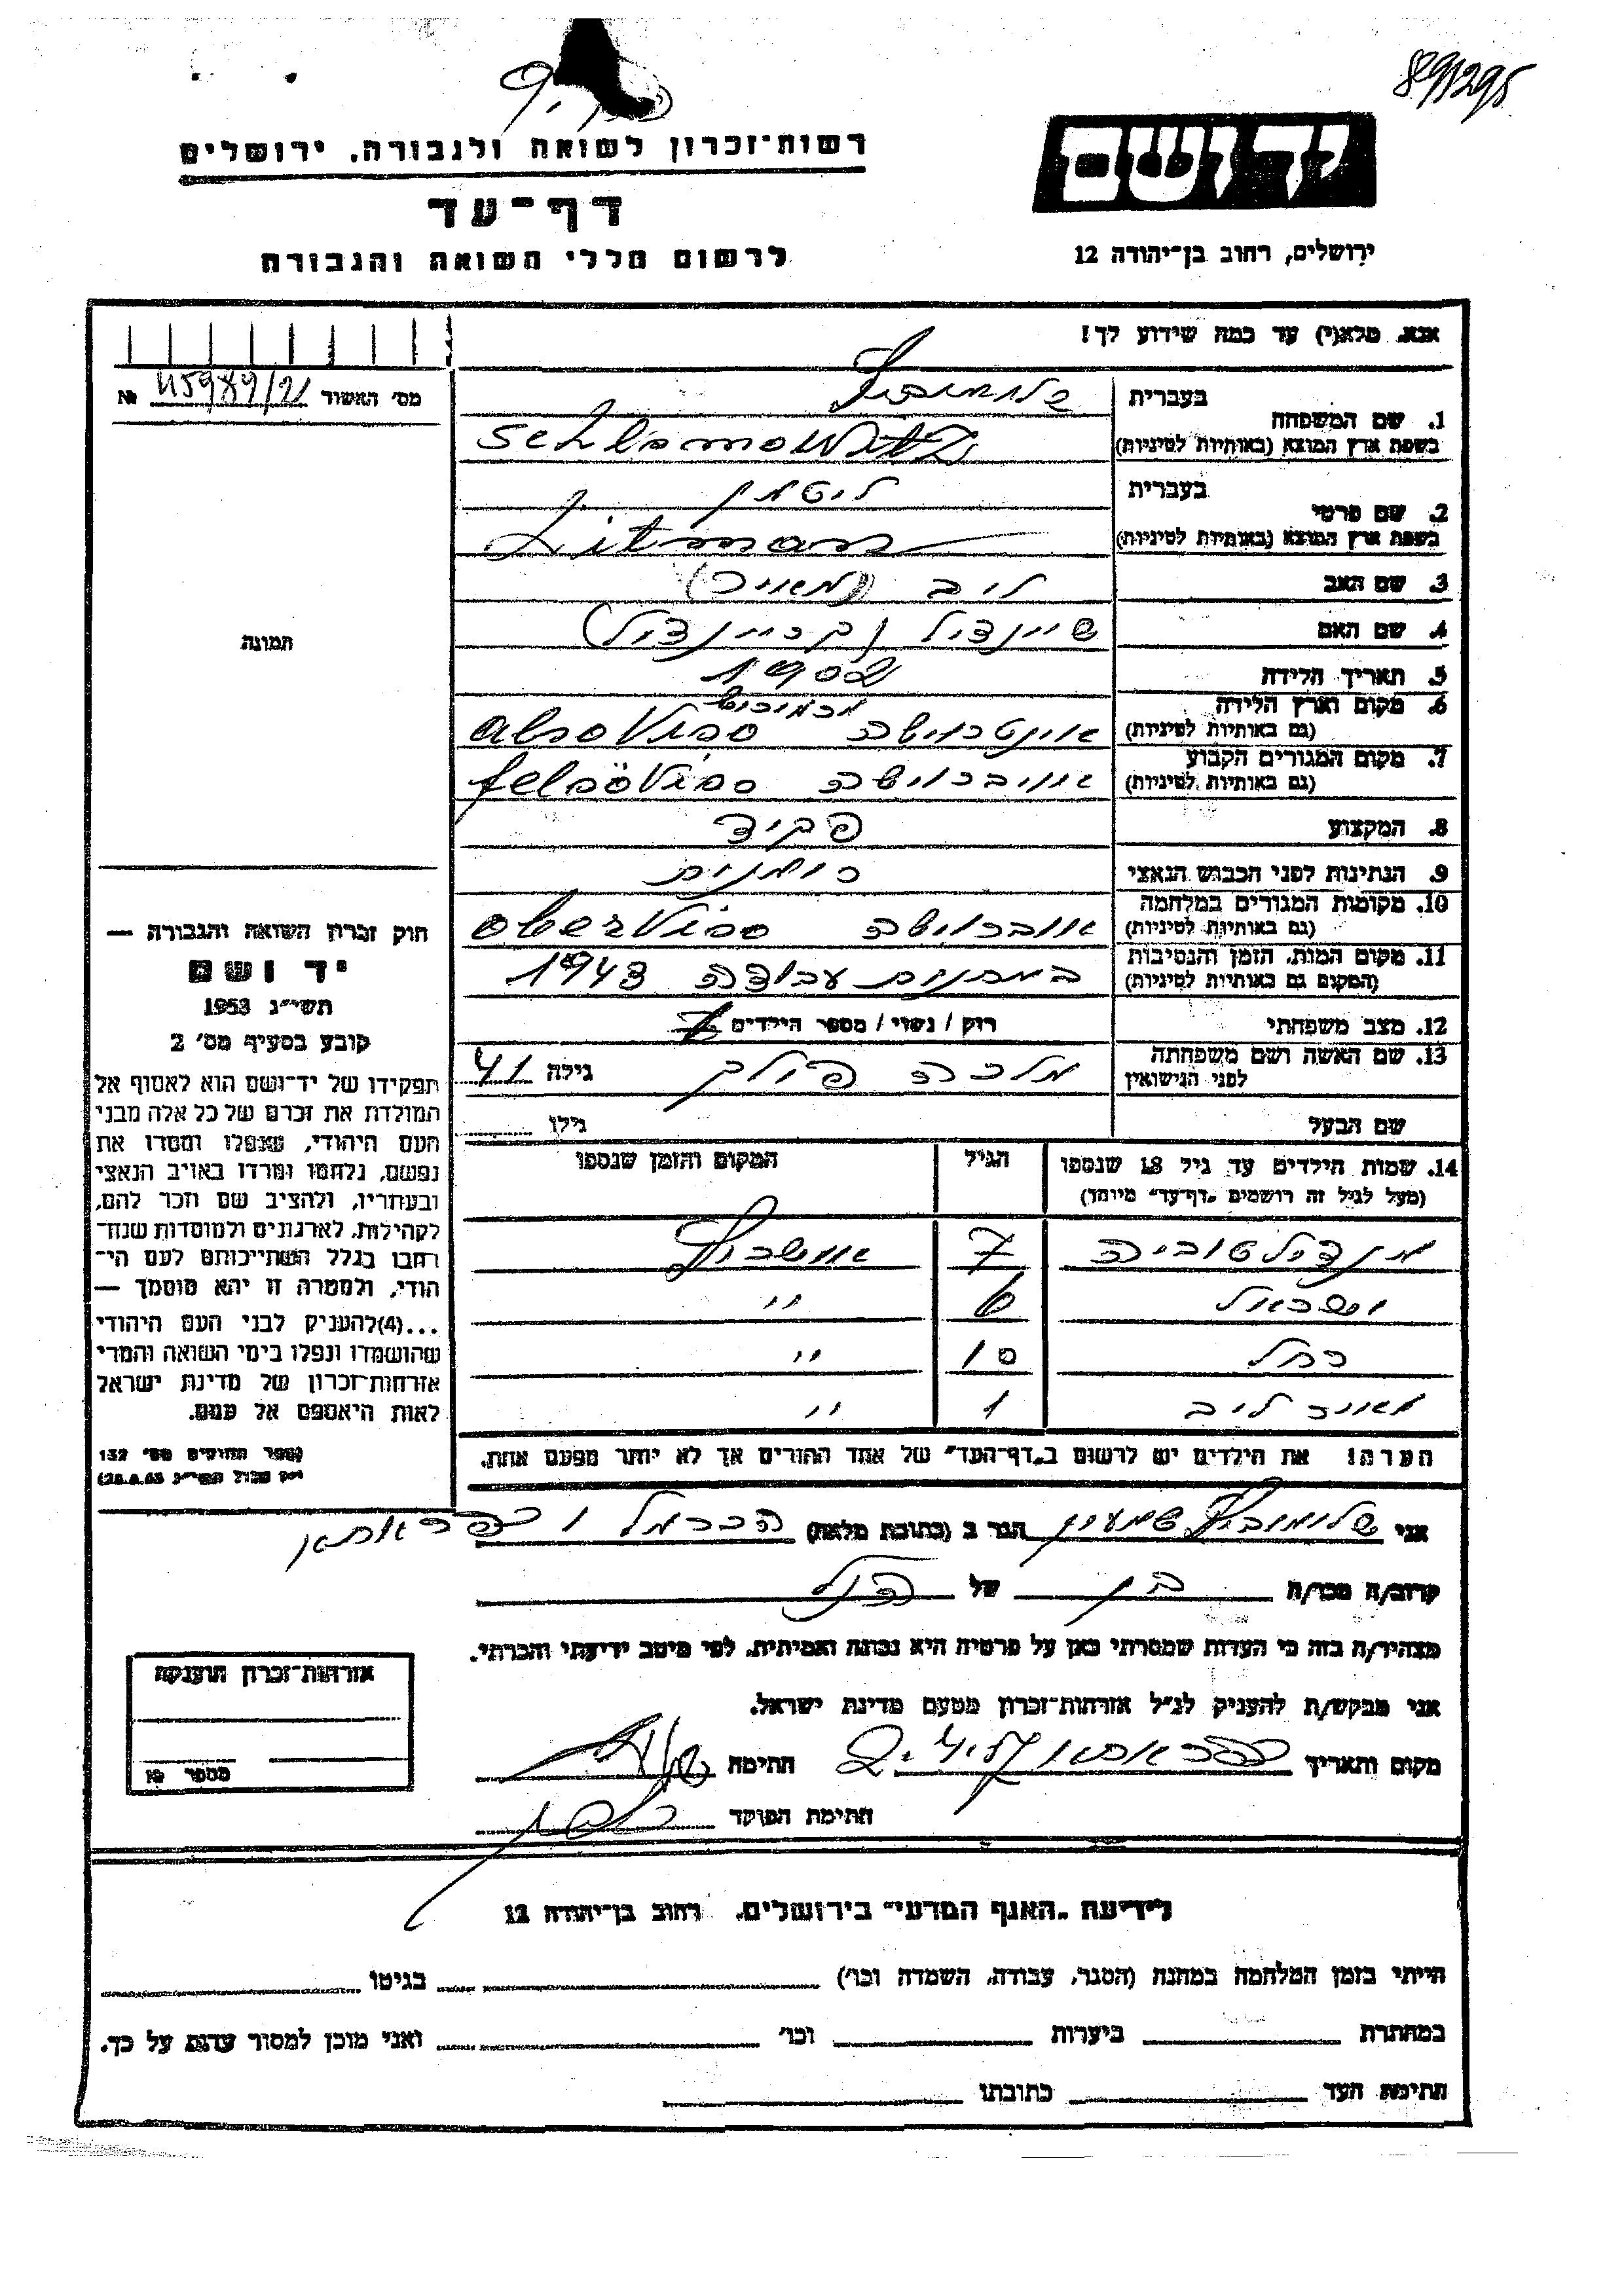 891295
רשות־זכרון לשואה ולגבורה, ירושלים
דף־עד
לרשום חללי השואה והגבורה
יד ושם
ירושלים, רחוב בן־יהודה 12
אנא, מלא(י) עד כמה שידוע לך!
מס' האשור 45989/21 №
תמונה
1. שם המשפחה בעברית שלומוביץ
בשפת ארץ המוצא (באותיות לטיניות) Schlomowitz
2. שם פרטי בעברית ליטמן
בשפת ארץ המוצא (באותיות לטיניות) Litman
3. שם האב ליב (מאיר)
4. שם האם שיינדיל (קריינדיל)
5. תאריך הלידה 1902
6. מקום וארץ הלידה
(גם באותיות לטיניות) אונטרווישה מרמורש alsoViso
7. מקום המגורים הקבוע
(גם באותיות לטיניות) אויברווישה felsöViso
8. המקצוע פקיד
9. הנתינות לפני הכבוש הנאצי רומנית
10. מקומות המגורים במלחמה
(גם באותיות לטיניות) אוברווישה oberViso
11. מקום המות, הזמן והנסיבות
(המקום גם באותיות לטיניות) במחנות עבודה 1943
12. מצב משפחתי רוק / נשוי / מספר הילדים 7
13. שם האשה ושם משפחתה
לפני הנישואין מלכה פולק גילה 41
שם הבעל גילו
14. שמות הילדים עד גיל 18 שנספו הגיל המקום והזמן שנספו
(מעל לגיל זה רושמים "דף־עד" מיוחד)
מנדיל טוביה 7 אושביץ
ישראל 6 "
רחל 10 "
מאיר ליב 1 "
הערה! את הילדים יש לרשום ב"דף־העד" של אחד ההורים אך לא יותר מפעם אחת.
חוק זכרון השואה והגבורה —
יד ושם
תשי"ג 1953
קובע בסעיף מס' 2
תפקידו של יד־ושם הוא לאסוף אל
המולדת את זכרם של כל אלה מבני
העם היהודי, שנפלו ומסרו את
נפשם, נלחמו ומרדו באויב הנאצי
ובעוזריו, ולהציב שם וזכר להם,
לקהילות, לארגונים ולמוסדות שנח־
רבו בגלל השתייכותם לעם הי־
הודי, ולמטרה זו יהא מוסמך —
...(4)להעניק לבני העם היהודי
שהושמדו ונפלו בימי השואה והמרי
אזרחות־זכרון של מדינת ישראל
לאות היאספם אל עמם.
(ספר החוקים מס' 132
אני שלומוביץ שמעון הגר ב (כתובת מלאה) הכרמל 1 כפר אתא
קרוב/ה מכר/ה בן של הנ"ל
מצהיר/ה בזה כי העדות שמסרתי כאן על פרטיה היא נכונה ואמיתית, לפי מיטב ידיעתי והכרתי.
אני מבקש/ת להעניק לנ"ל אזרחות־זכרון מטעם מדינת ישראל.
מקום ותאריך כפר אתא חתימה
חתימת הפוקד
אזרחות־זכרון הוענקה
מספר №
לידיעת "האגף המדעי" בירושלים, רחוב בן־יהודה 12
הייתי בזמן המלחמה במחנה (הסגר, עבודה, השמדה וכו') בגיטו
במחתרת ביערות וכו' ואני מוכן למסור עדות על כך.
חתימת העד כתובתו